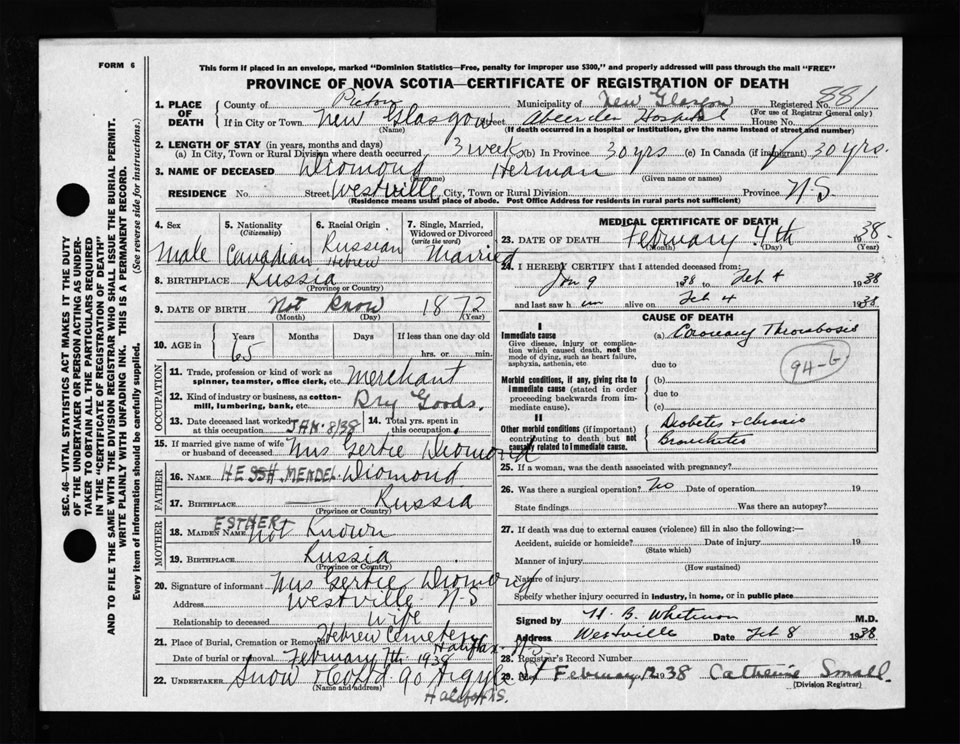 FORM 6
This form if placed in an envelope, marked "Dominion Statistics—Free, penalty for improper use $300," and properly addressed will pass through the mail "FREE"
PROVINCE OF NOVA SCOTIA—CERTIFICATE OF REGISTRATION OF DEATH
1. PLACE OF DEATH County of Pictou Municipality of New Glasgow Registered No. 881
(For use of Registrar General only)
If in City or Town New Glasgow Street Aberdeen Hospital House No.
(Name) (If death occurred in a hospital or institution, give the name instead of street and number)
2. LENGTH OF STAY (in years, months and days)
(a) In City, Town or Rural Division where death occurred 3 weeks (b) In Province 30 yrs (c) In Canada (if immigrant) 30 yrs.
3. NAME OF DECEASED Diomond Herman
(Surname) (Given name or names)
RESIDENCE No. Street Westville City, Town or Rural Division Province N S
(Residence means usual place of abode. Post Office Address for residents in rural parts not sufficient)
4. Sex Male
5. Nationality (Citizenship) Canadian
6. Racial Origin Russian Hebrew
7. Single, Married, Widowed or Divorced (write the word) Married
8. BIRTHPLACE Russia
(Province or Country)
9. DATE OF BIRTH Not Know 1872
(Month) (Day) (Year)
10. AGE in Years Months Days If less than one day old
65 hrs. or min.
OCCUPATION
11. Trade, profession or kind of work as spinner, teamster, office clerk, etc. Merchant
12. Kind of industry or business, as cotton-mill, lumbering, bank, etc. Dry Goods.
13. Date deceased last worked at this occupation JAN. 8/38 14. Total yrs. spent in this occupation
15. If married give name of wife or husband of deceased Mrs Gertie Diomond
FATHER
16. NAME HESSH MENDEL Diomond
17. BIRTHPLACE Russia
(Province or Country)
MOTHER
18. MAIDEN NAME ESTHER Not Known
19. BIRTHPLACE Russia
(Province or Country)
20. Signature of informant Mrs Gertie Diomond
Address Westville N S
Relationship to deceased Wife
21. Place of Burial, Cremation or Removal Hebrew Cemetery Halifax N S
Date of burial or removal February 7th 1938
22. UNDERTAKER Snow & Co Ltd 90 Argyle St
(Name and address) Halifax N.S.
MEDICAL CERTIFICATE OF DEATH
23. DATE OF DEATH February 4th 1938.
(Month) (Day) (Year)
24. I HEREBY CERTIFY that I attended deceased from:
Jan 9 1938 to Feb 4 1938
and last saw him alive on Feb 4 1938
CAUSE OF DEATH
I
Immediate cause
Give disease, injury or complication which caused death, not the mode of dying, such as heart failure, asphyxia, asthenia, etc
(a) Coronary Thrombosis
due to
94-b
Morbid conditions, if any, giving rise to immediate cause (stated in order proceeding backwards from immediate cause).
(b)
due to
(c)
II
Other morbid conditions (if important) contributing to death but not causally related to immediate cause.
Diabetes & chronic
Bronchitis
25. If a woman, was the death associated with pregnancy?
26. Was there a surgical operation? No Date of operation 19
State findings Was there an autopsy?
27. If death was due to external causes (violence) fill in also the following:—
Accident, suicide or homicide? Date of injury 19
(State which)
Manner of injury
(How sustained)
Nature of injury
Specify whether injury occurred in industry, in home, or in public place
Signed by H. B. Whitman M.D.
Address Westville Date Feb 8 1938
28. Registrar's Record Number
29. Filed February 12 1938 Catherine Small.
(Division Registrar)
SEC. 46—VITAL STATISTICS ACT MAKES IT THE DUTY
OF THE UNDERTAKER OR PERSON ACTING AS UNDERTAKER
TO OBTAIN ALL THE PARTICULARS REQUIRED
IN THE "CERTIFICATE OF REGISTRATION OF DEATH"
AND TO FILE THE SAME WITH THE DIVISION REGISTRAR WHO SHALL ISSUE THE BURIAL PERMIT.
WRITE PLAINLY WITH UNFADING INK. THIS IS A PERMANENT RECORD.
Every item of information should be carefully supplied. (See reverse side for instructions.)